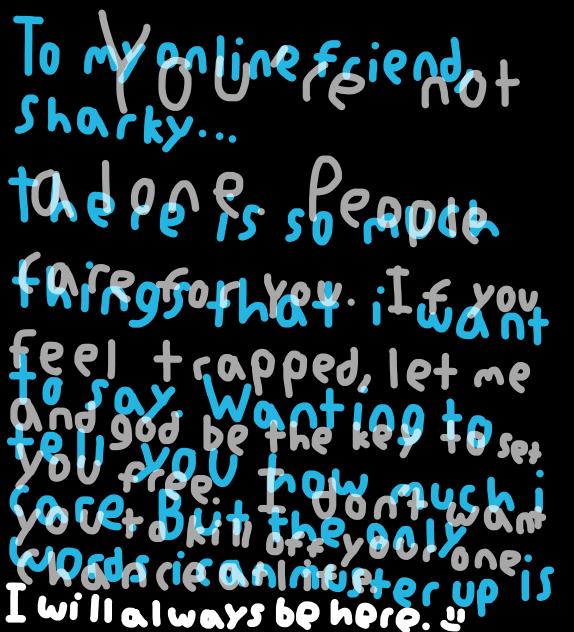 To my online friend,
sharky...
there is so much
things that i want
to say. Wanting to
tell you how much i
care But the only
words i can muster up is
You're not
alone. People
care for you. If you
feel trapped, let me
and god be the key to set
you free. I don't want
you to kill off your one
chance an life.
I will always be here. :)